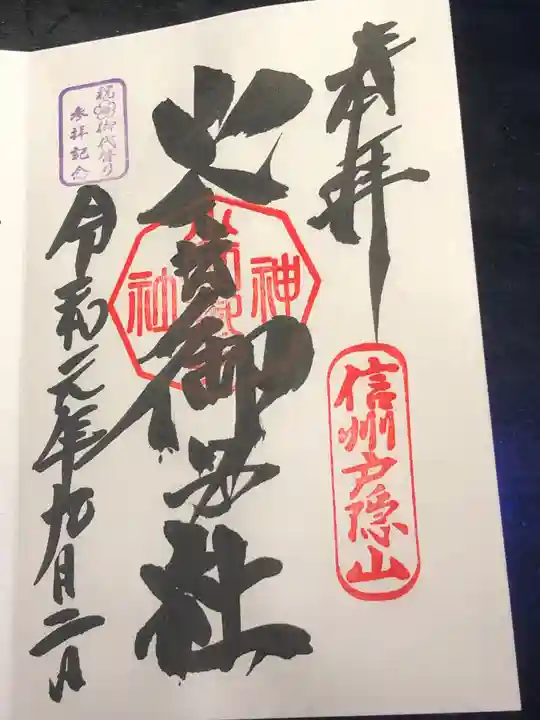 奉拝
信州戸隠山
火之御子社
神
社
令和元年九月二日
祝御代替り
参拝記念